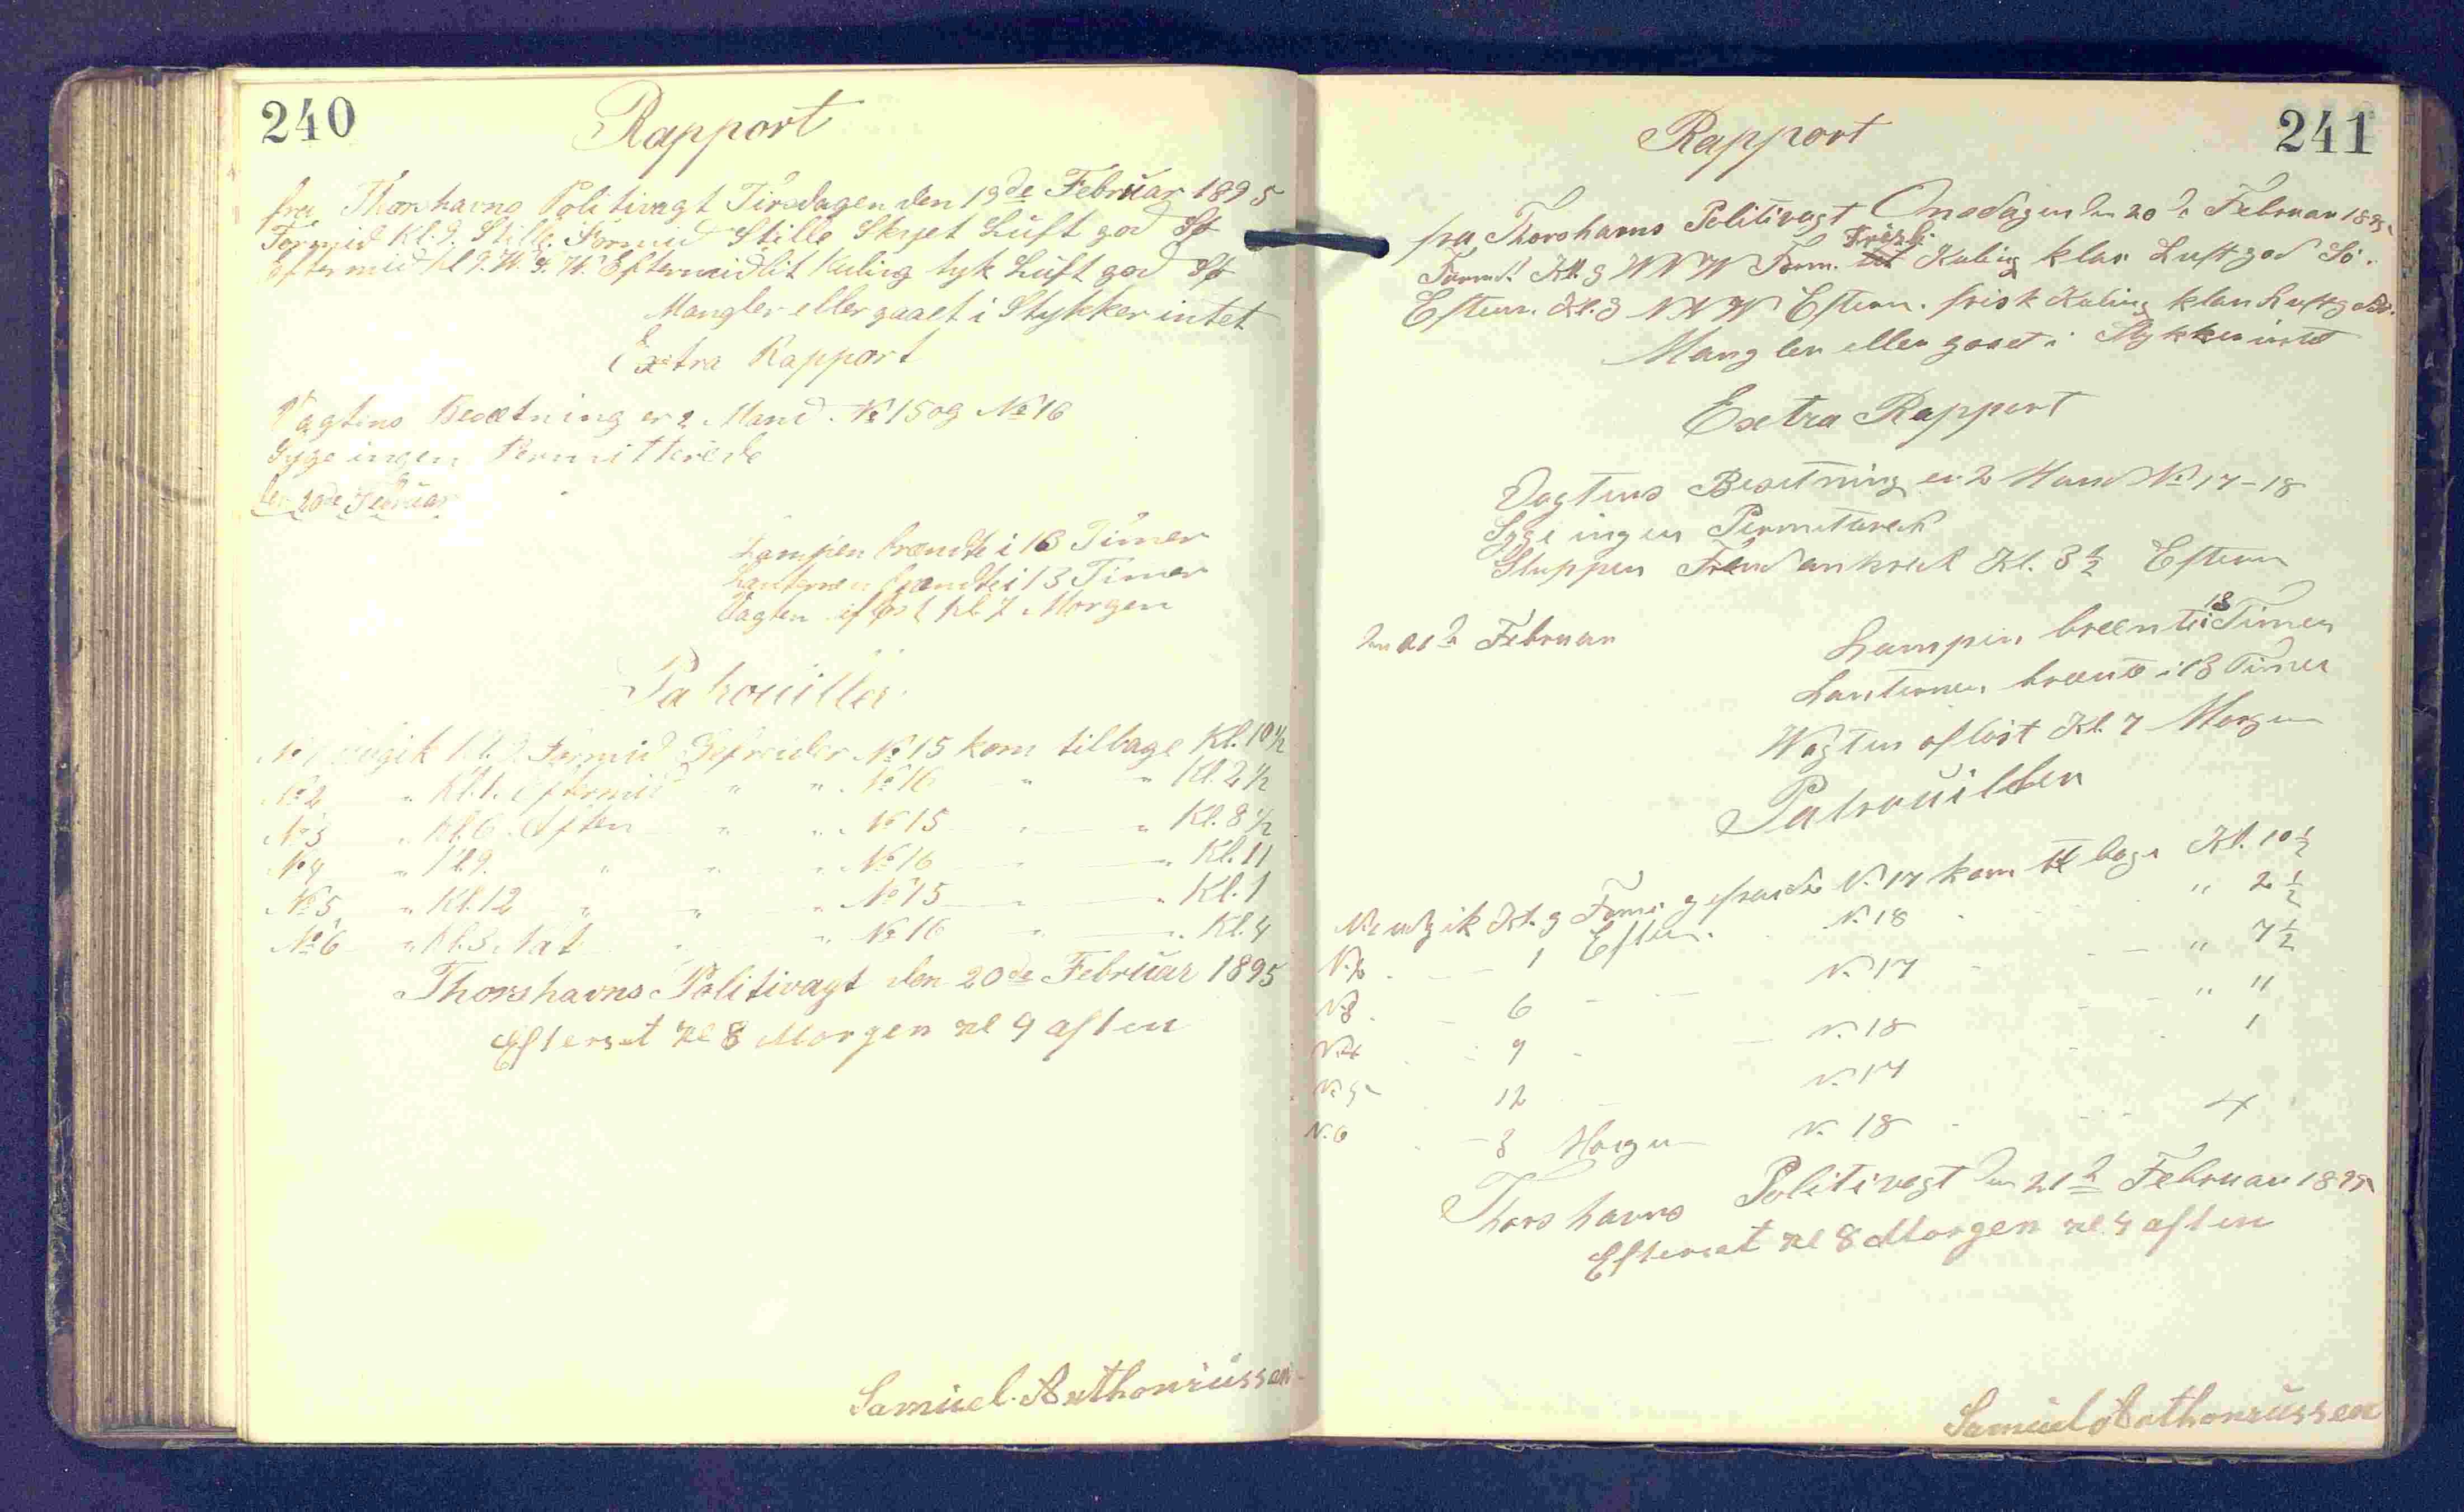 240
Rapport
fra Thorshavns Politivagt Tirsdagen den 19de Februar 1895
Formid Kl. 9. Stille. Formid Stille Skyet Luft god Sø
Eftermid Kl 9. W. t. W. Eftermid lit Kuling tyk Luft god Sø
Mangler eller gaaet i Stykker intet
Extra Rapport
Vagtens Besætning er 2 Mand № 15 og № 16
Syge ingen Permitterede
den 20de Februar
Lampen brændte i 13 Timer
Lanternen brændte i 13 Timer
Vagten afløst Kl. 7 Morgen
Patrouiller
№ 1 udgik Kl. 9 Formid Gefreider № 15 kom tilbage Kl. 10½
№ 2 " Kl. 1. Eftermid " " № 16 " " Kl. 2½
№ 3 " Kl. 6. Aften " " № 15 " " Kl. 8½
№ 4 " Kl. 9. " " " № 16 " " Kl. 11
№ 5 " Kl. 12 " " " № 15 " " Kl. 1
№ 6 " Kl. 3. Nat " " № 16 " " Kl. 4
Thorshavns Politivagt den 20de Februar 1895
Efterset Kl 8 Morgen Kl 9 aften
Samuel. Anthoniussen
241
Rapport
fra Thorshavns Politivagt Onsdagen den 20de Februar 1895
Formd. Kl. 9 WNW Form. Frisk Kuling klar Luft god Sö.
Efterm. Kl. 9 NNW Efterm. frisk Kuling klar Luft god
Mangler eller gaaet i Stykker intet
Extra Rapport
Vagtens Besetning er 2 Mand № 17-18
Syge ingen Permitered
Sluppen ankred Kl. 3½ Efterm
den 21d Februar
Lampen brænte i 13 Timer
Lanternen brænte i 13 Timer
Wagten aflöst Kl. 7 Morgen
Patrouillen
№ 1 udgik Kl. 9 Form. gefreide N. 17 kom tilbage Kl. 10½
N. 2 1 Efterm. N. 18 " 2½
N. 3 6 N. 17 " 7½
N. 4 9 N. 18 " 11
N. 5 12 N. 17 1
N. 6 3 Morgen N. 18 4
Thorshavns Politivagt den 21d Februar 1895
Efterset Kl 8 Morgen Kl. 9 aften
Samuel Anthoniussen